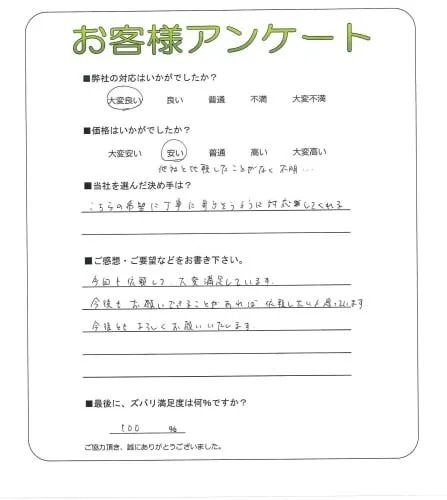 お客様アンケート
■弊社の対応はいかがでしたか？
大変良い 良い 普通 不満 大変不満
■価格はいかがでしたか？
大変安い 安い 普通 高い 大変高い
他社と比較したことがなく不明...
■当社を選んだ決め手は？
こちらの希望に丁寧に寄りそうように対応してくれる
■ご感想・ご要望などをお書き下さい。
今回も依頼して、大変満足しています。
今後も お願いできることがあれば 依頼したいと思っています
今後とも よろしくお願いいたします。
■最後に、ズバリ満足度は何%ですか？
100 %
ご協力頂き、誠にありがとうございました。